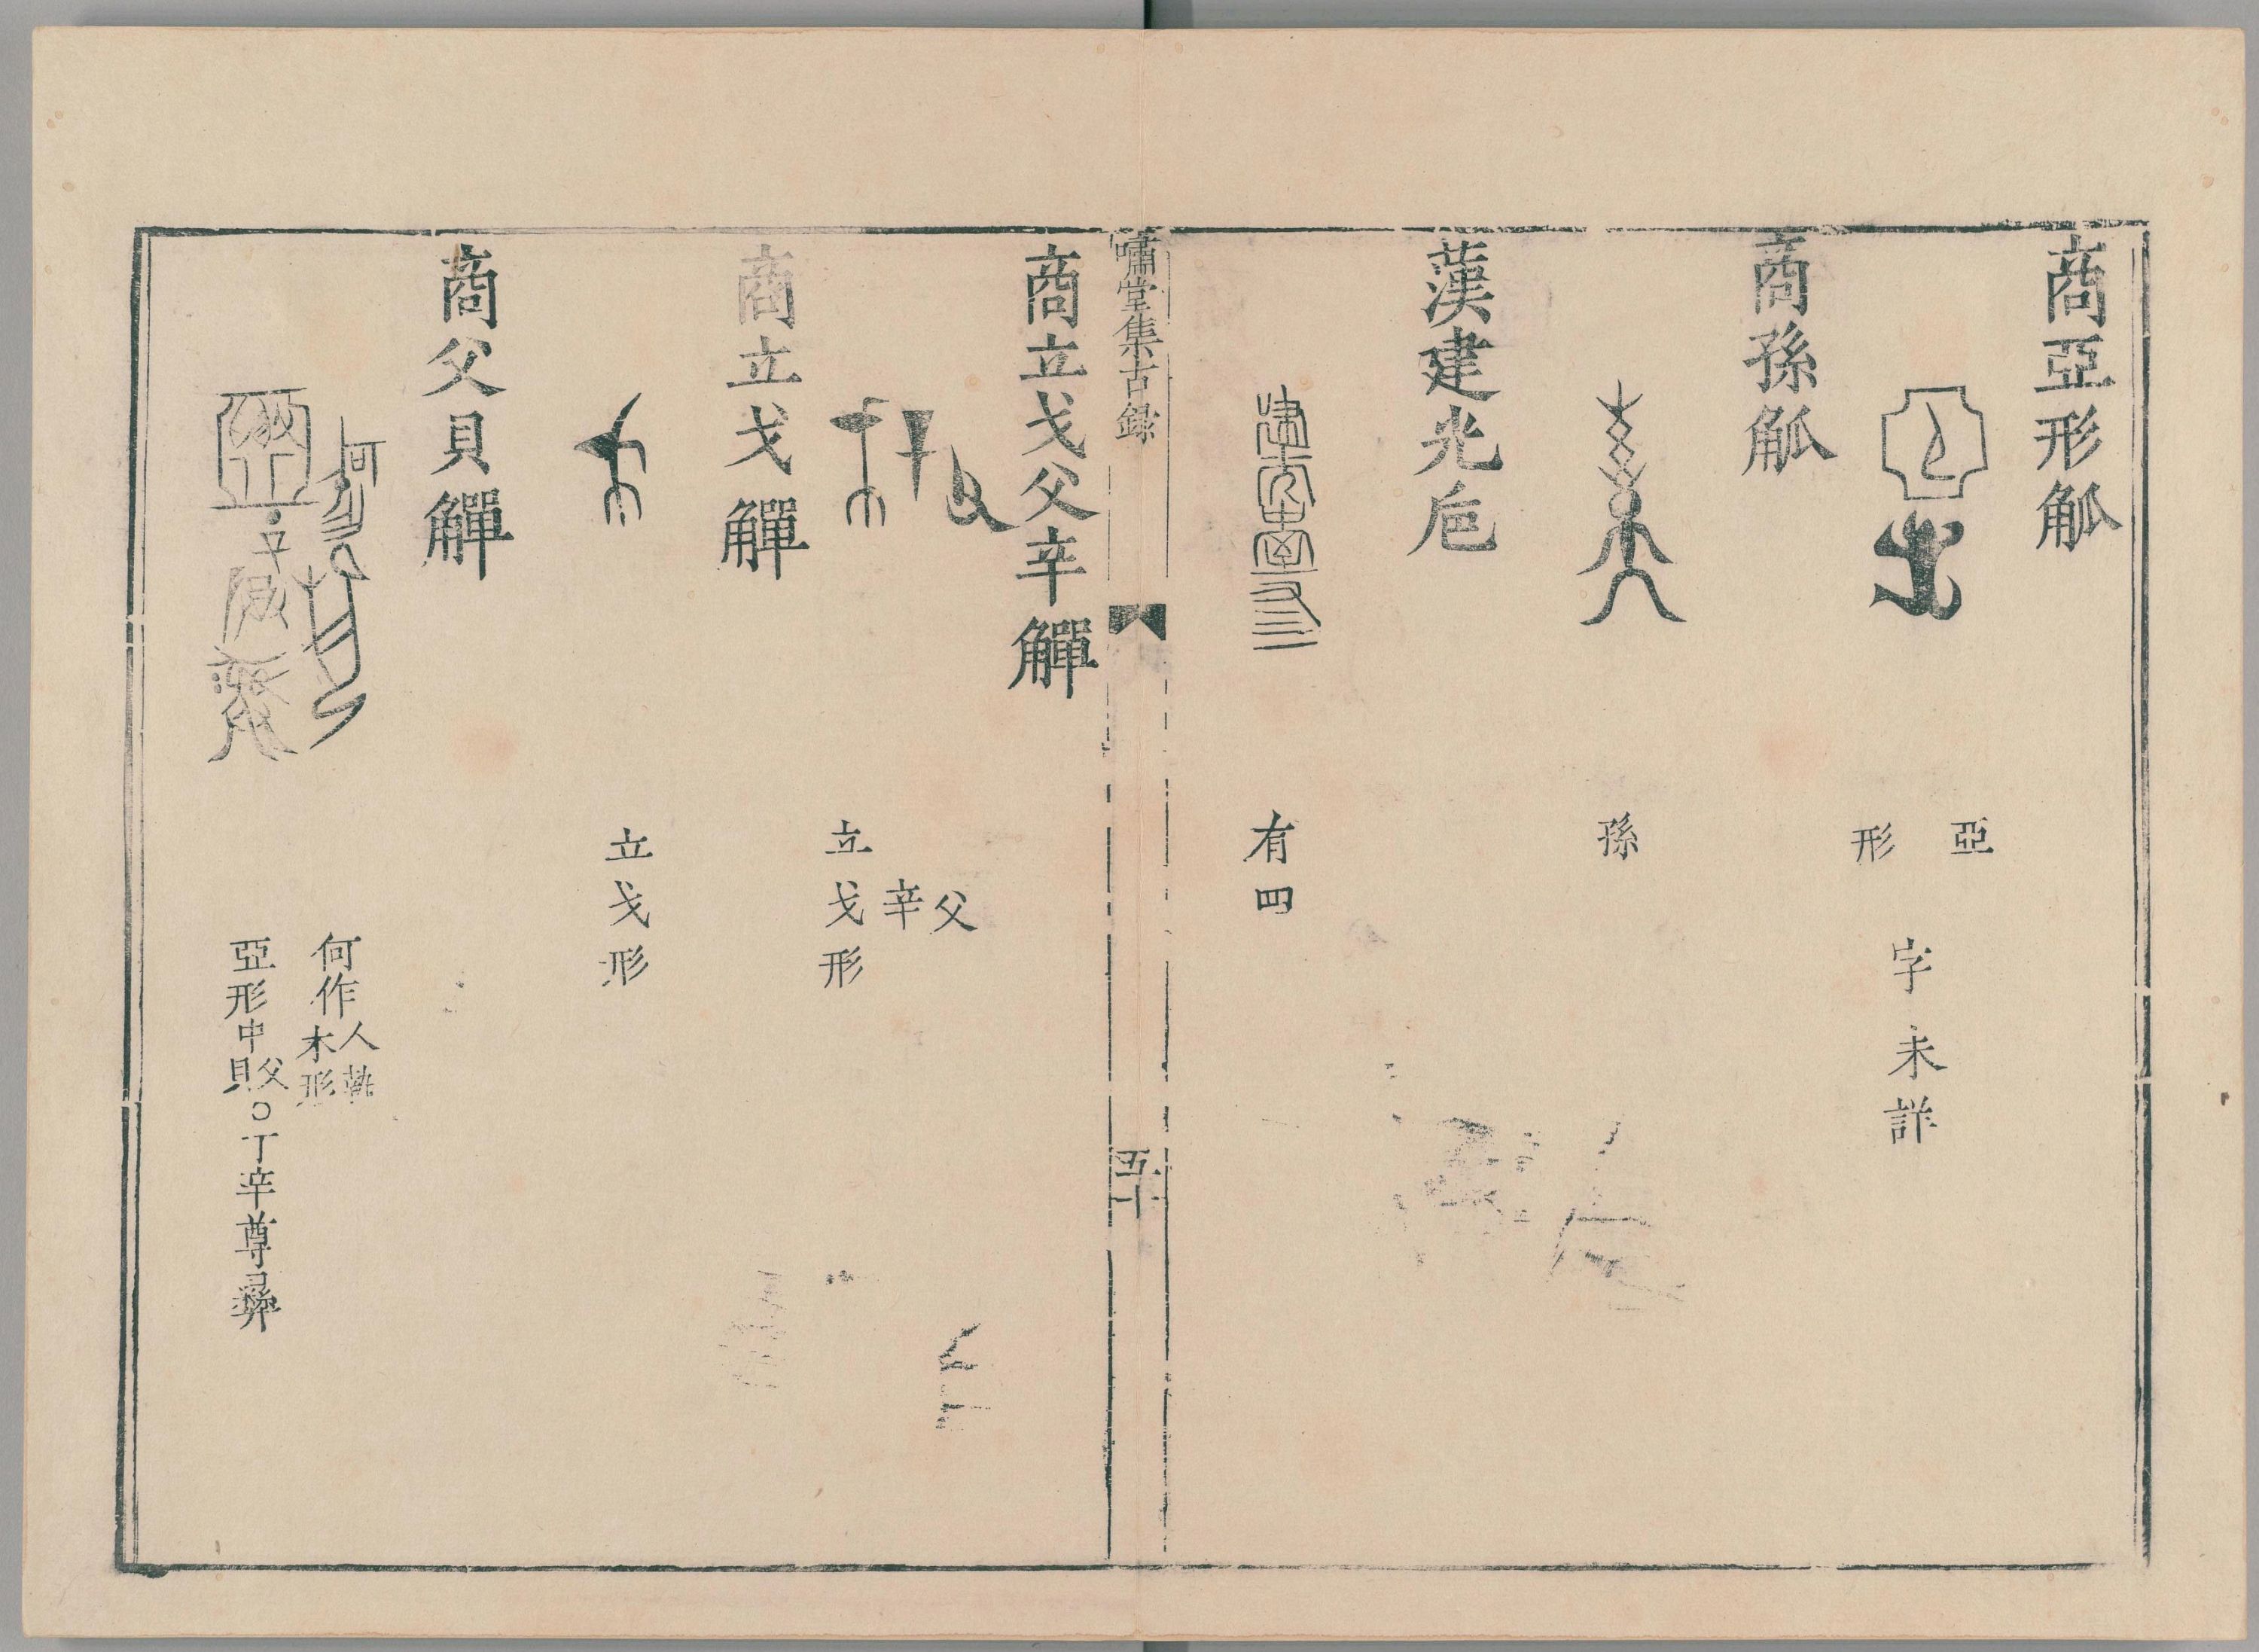 商亞形觚
亞
形
字未詳
商孫觚
孫
漢建光巵
有四
嘯堂集古録
五十
商立戈父辛觶
父
辛
立戈形
商立戈觶
立戈形
商父貝觶
何作人執木形
亞形中父貝〇丁辛尊彞